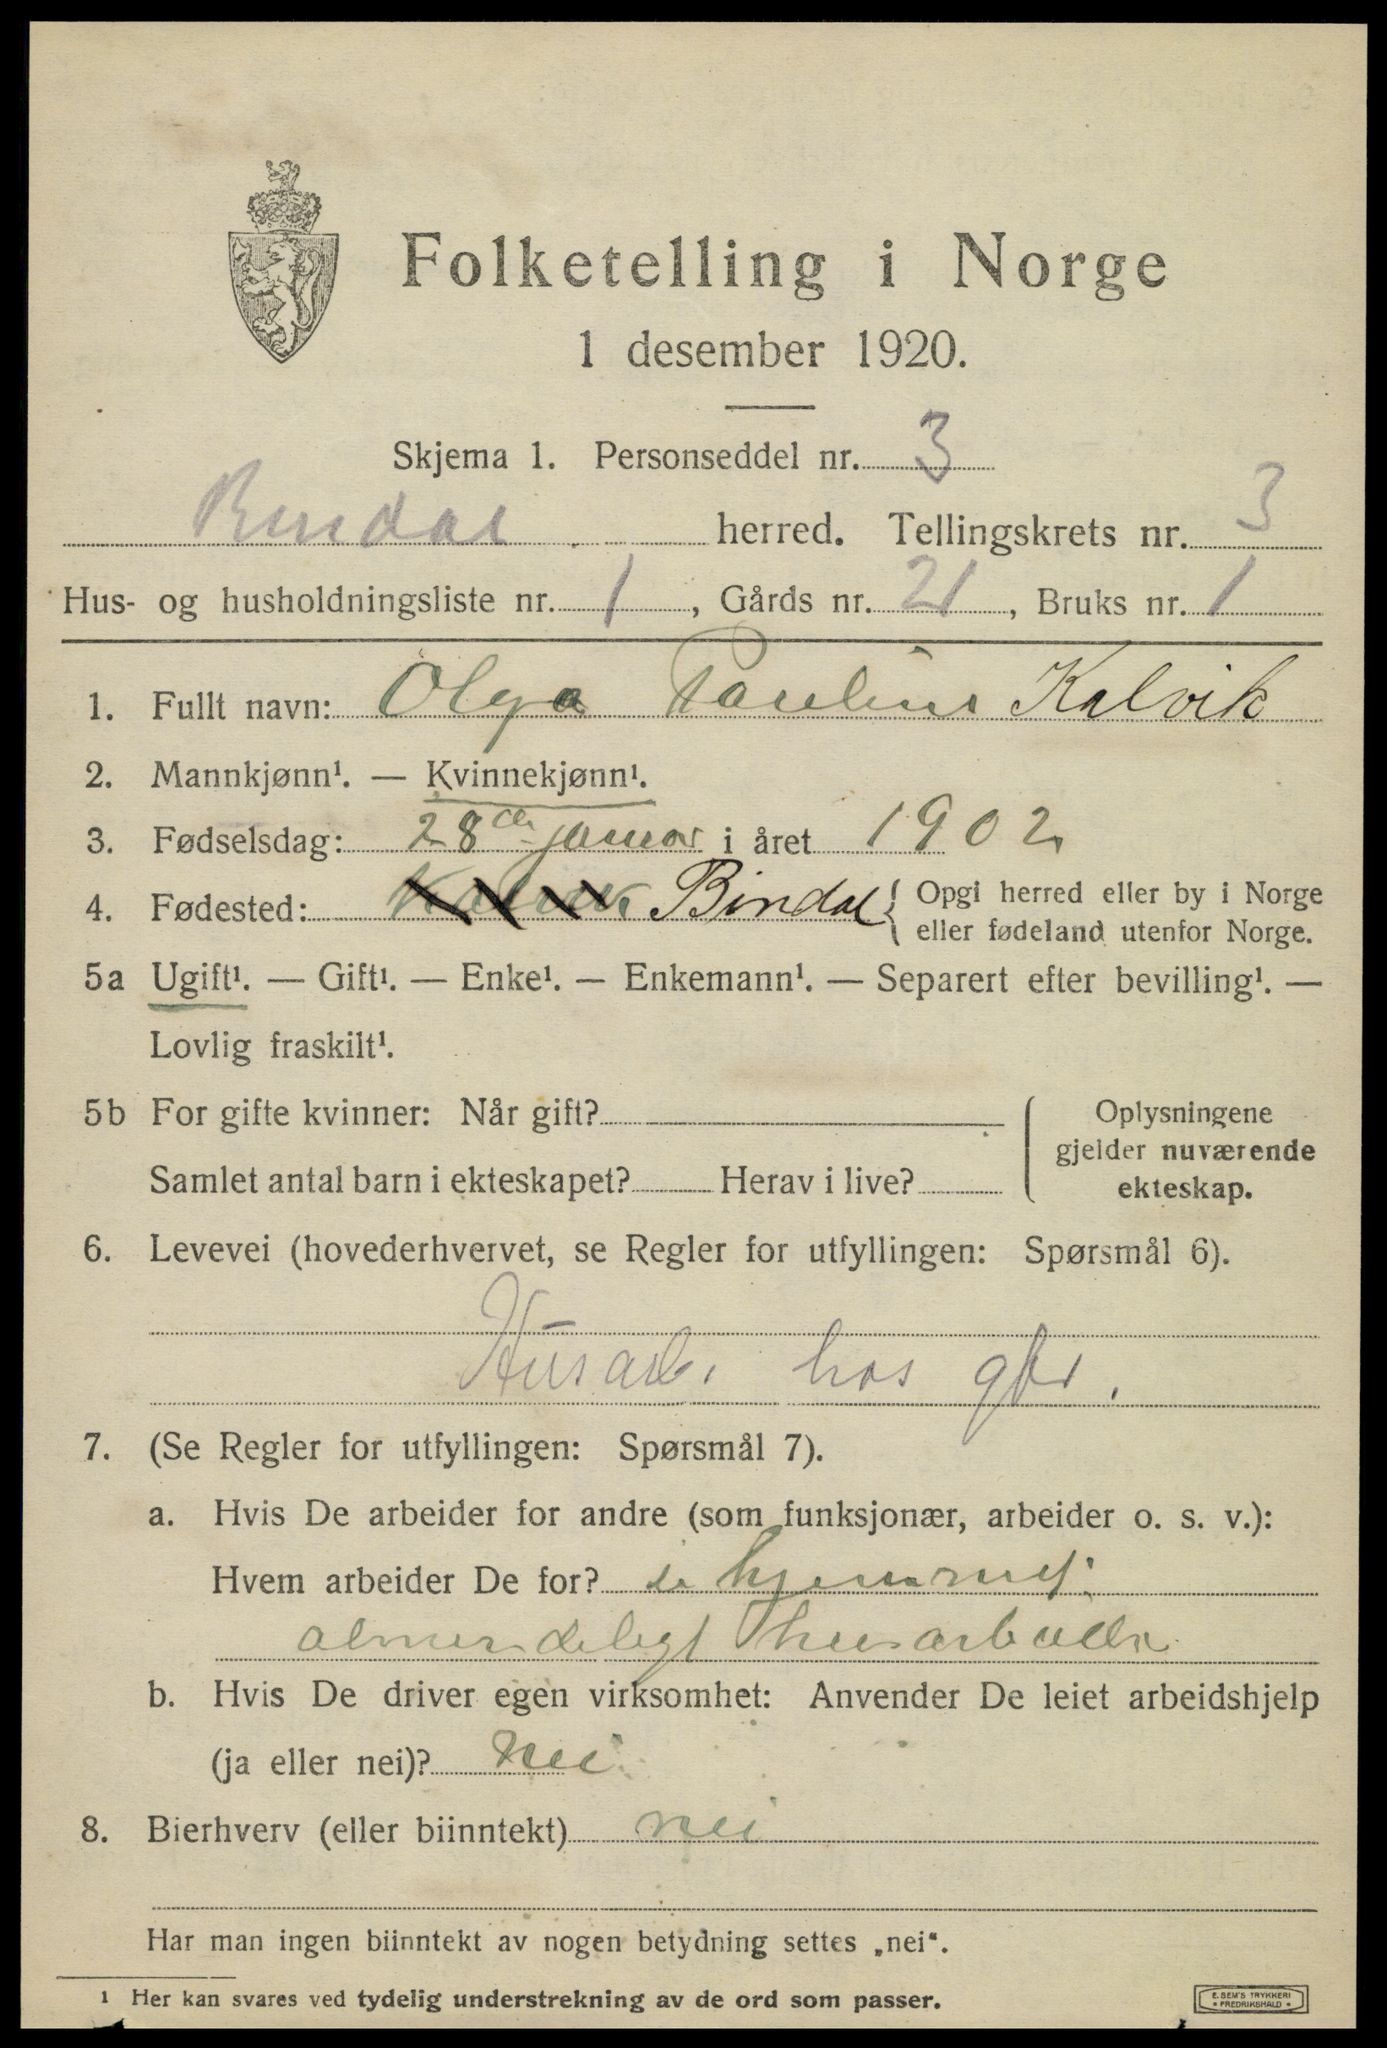 Folketelling i Norge
1 desember 1920.
Skjema 1. Personseddel nr. 3
Bindal herred. Tellingskrets nr. 3
Hus- og husholdningsliste nr. 1, Gårds nr. 21, Bruks nr. 1
1. Fullt navn: Olga Pauline Kalvik
2. Mannkjønn¹. — Kvinnekjønn¹.
3. Fødselsdag: 28de januar i året 1902
4. Fødested: Kalvik Bindal { Opgi herred eller by i Norge
eller fødeland utenfor Norge.
5a Ugift¹. — Gift¹. — Enke¹. — Enkemann¹. — Separert efter bevilling¹. —
Lovlig fraskilt¹.
5b For gifte kvinner: Når gift?
Samlet antal barn i ekteskapet? Herav i live?
Oplysningene
gjelder nuværende
ekteskap.
6. Levevei (hovederhvervet, se Regler for utfyllingen: Spørsmål 6).
Husarb. hos gbr.
7. (Se Regler for utfyllingen: Spørsmål 7).
a. Hvis De arbeider for andre (som funksjonær, arbeider o. s. v.):
Hvem arbeider De for? i hjemmet
almindeligt husarbeide
b. Hvis De driver egen virksomhet: Anvender De leiet arbeidshjelp
(ja eller nei)? Nei
8. Bierhverv (eller biinntekt) nei
Har man ingen biinntekt av nogen betydning settes „nei“.
¹ Her kan svares ved tydelig understrekning av de ord som passer.
E. SEM'S TRYKKERI
• FREDRIKSHALD •